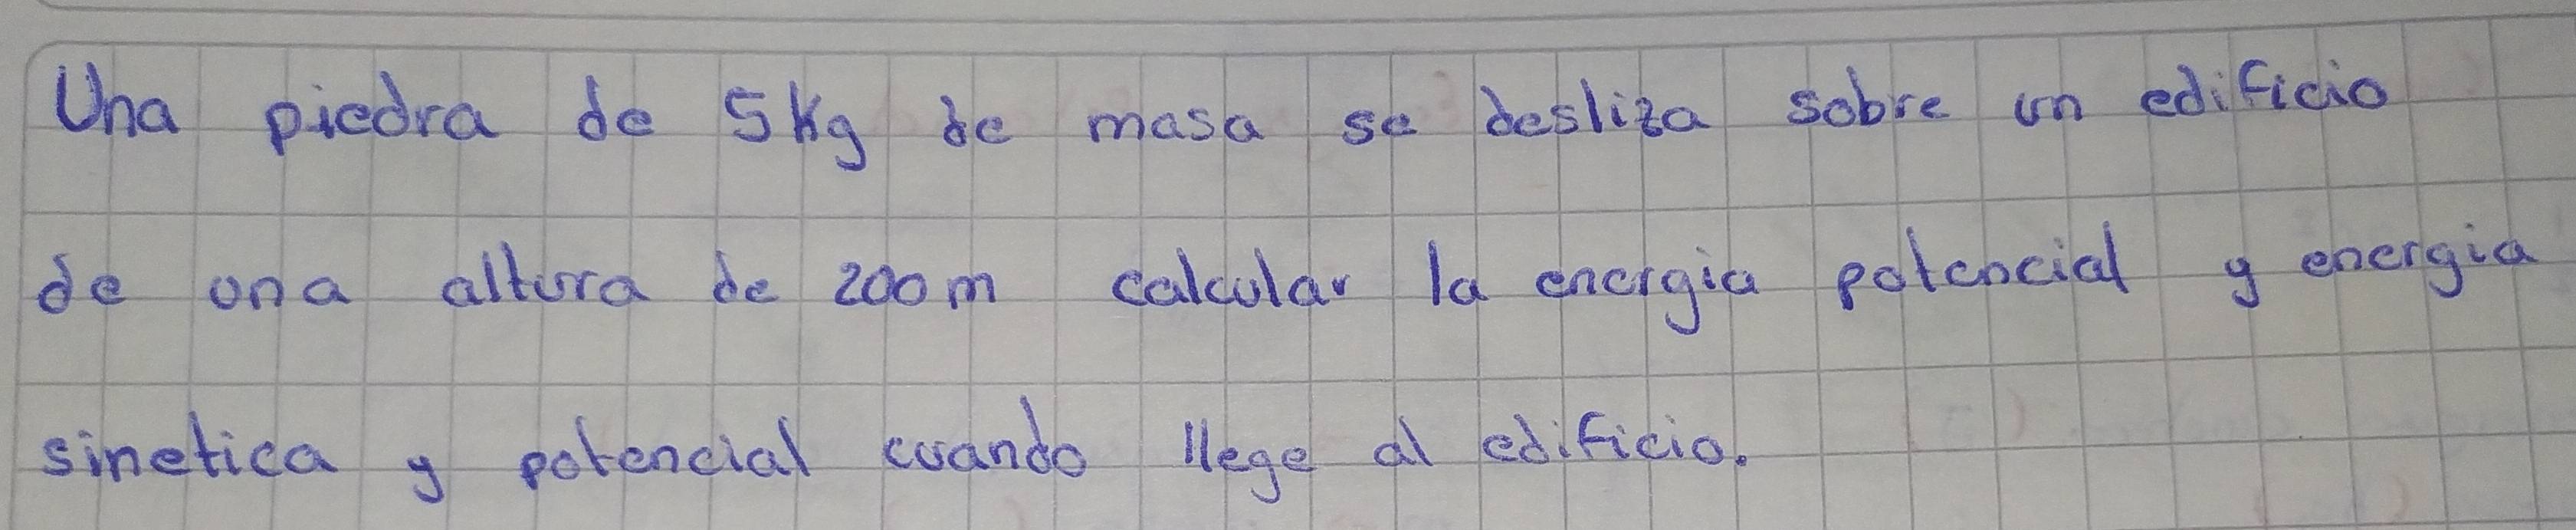 Una piedra de 5Kg de masa se desliza sobre un edificio
de una altura de 200m calcular la energia potencial y energia
sinetica y potencial cuando llege al edificio.